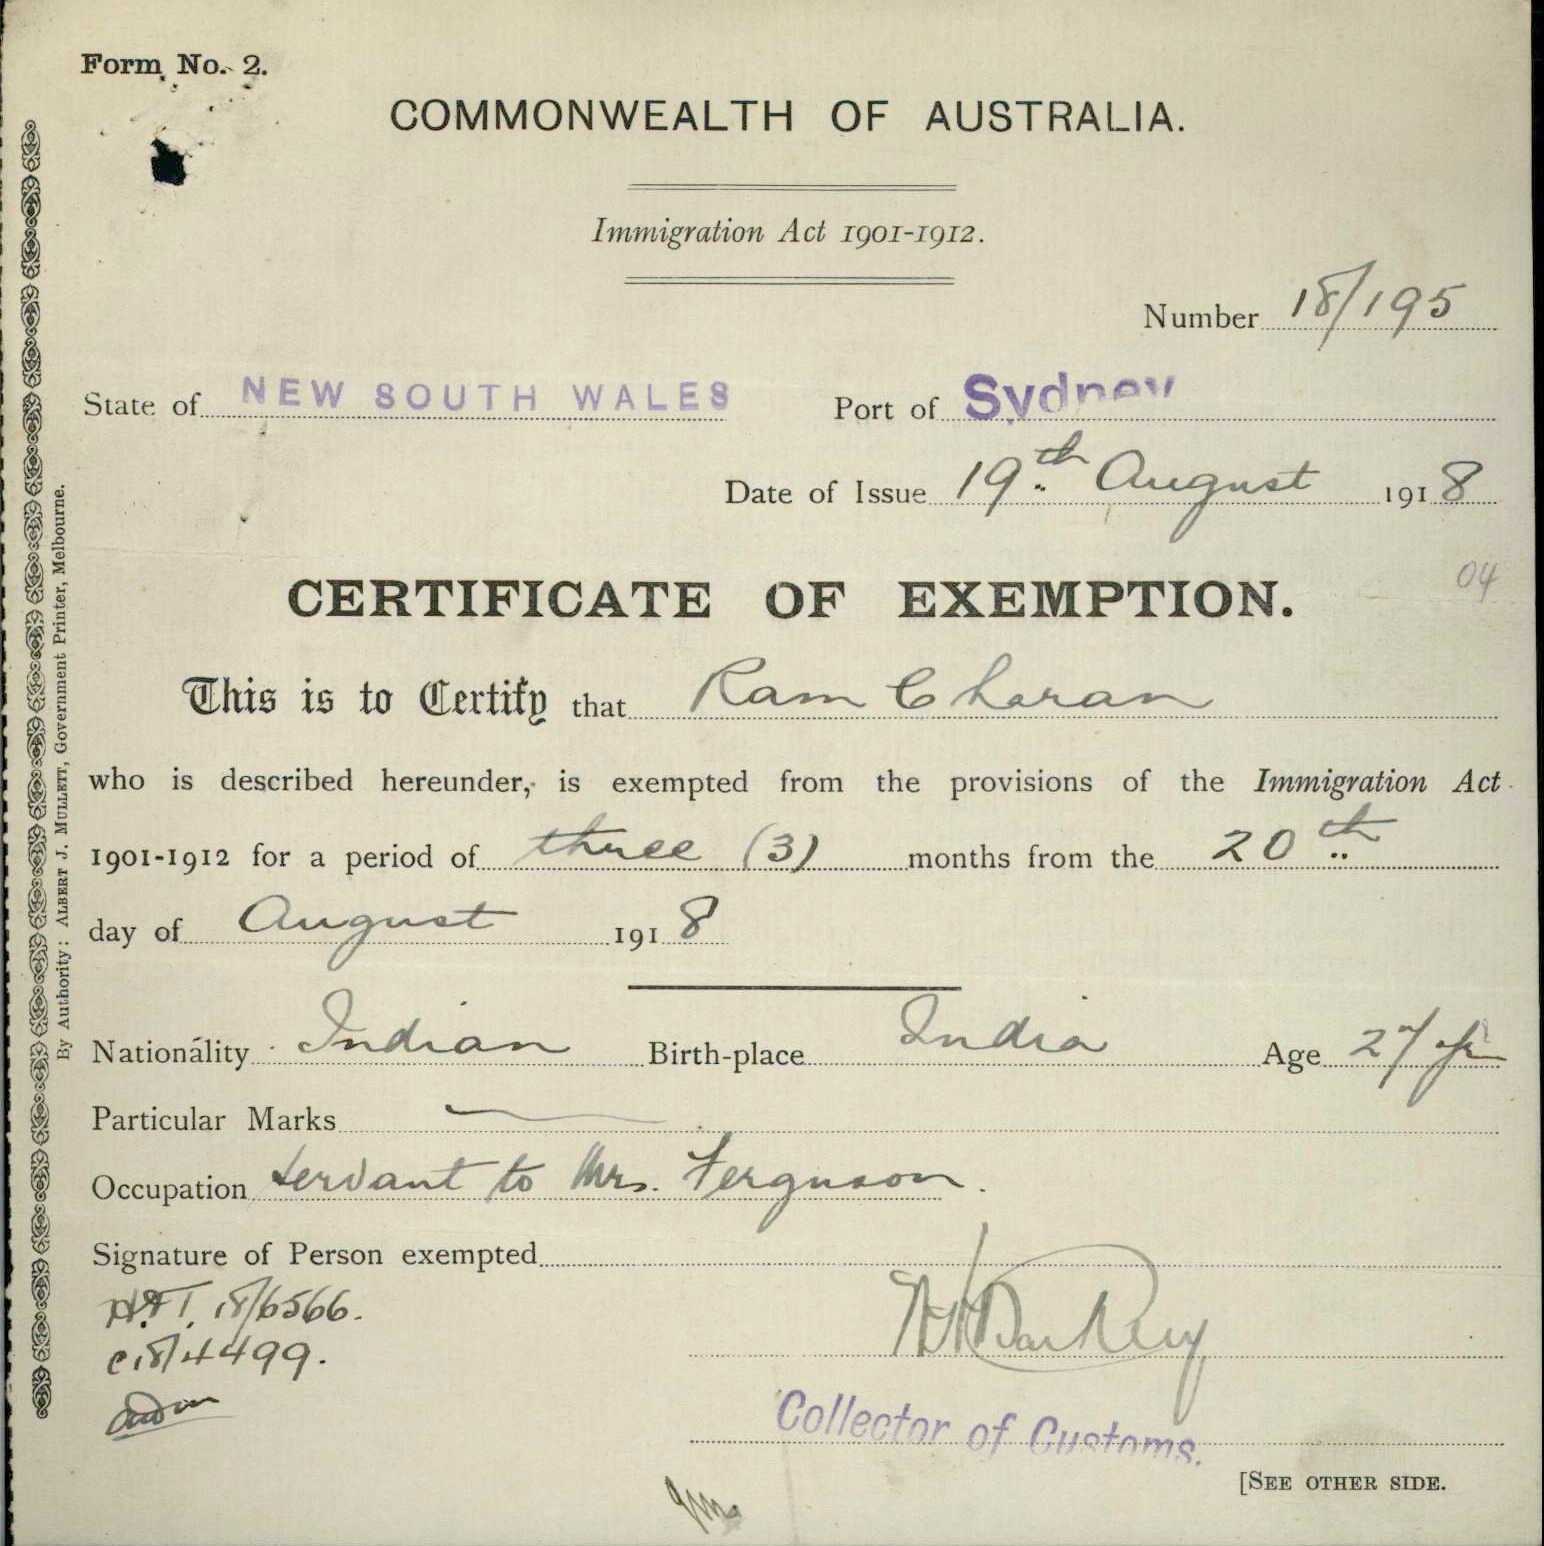 Form No. 2.
COMMONWEALTH OF AUSTRALIA.
Immigration Act 1901-1912.
Number 18/195
State of NEW SOUTH WALES Port of Sydney
Date of Issue 19th August 1918
CERTIFICATE OF EXEMPTION.
04
This is to Certify that Ram Charan
who is described hereunder, is exempted from the provisions of the Immigration Act
1901-1912 for a period of three (3) months from the 20th
day of August 1918
Nationality Indian Birth-place India Age 27 yrs
Particular Marks
Occupation Servant to Mrs. Ferguson.
Signature of Person exempted
18/6566.
C18/4499.
Collector of Customs.
[SEE OTHER SIDE.
By Authority: ALBERT J. MULLETT, Government Printer, Melbourne.